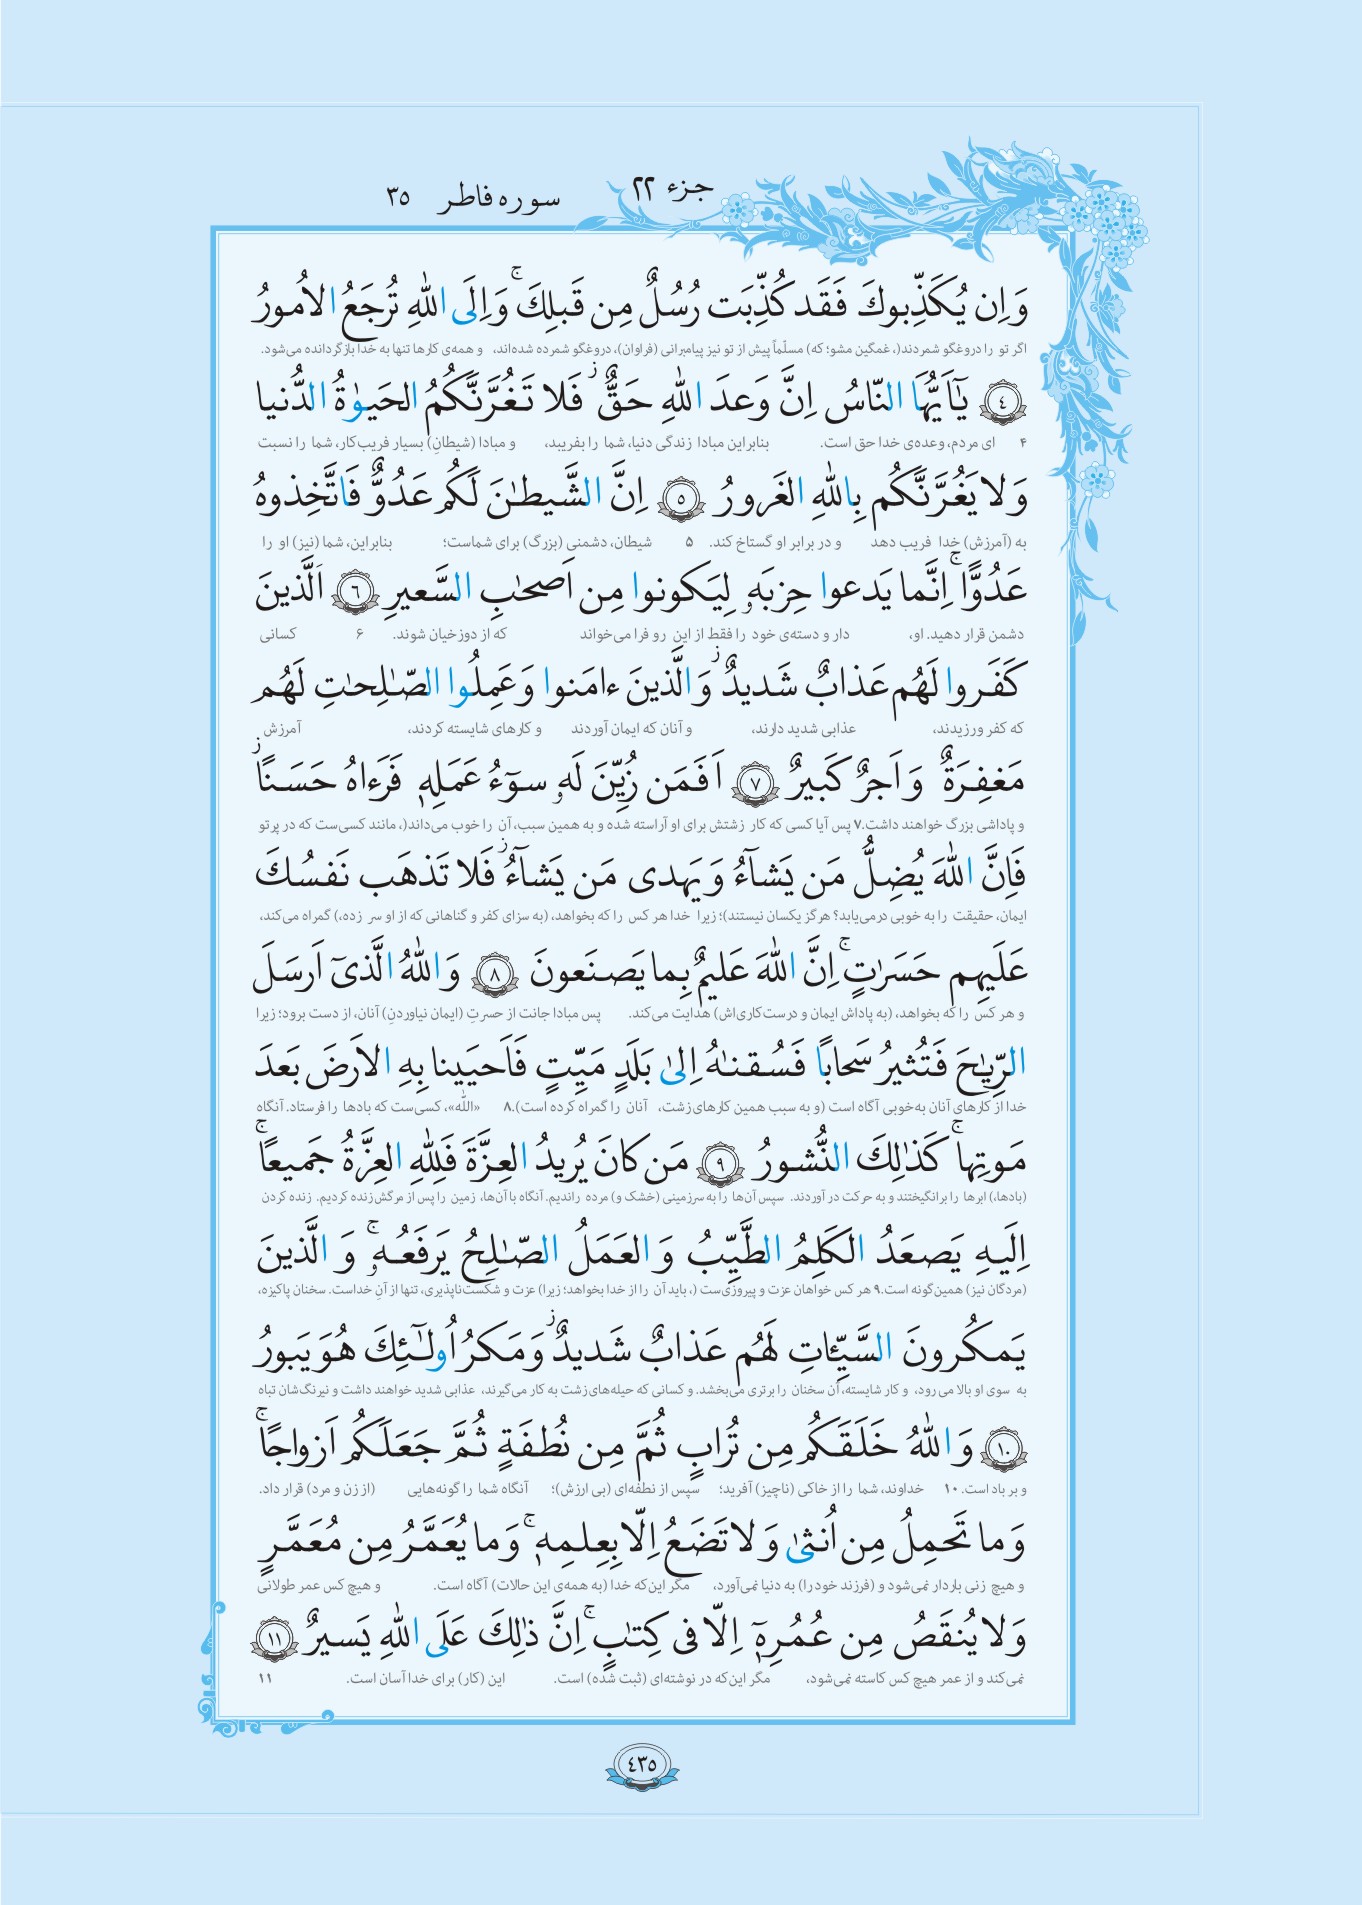 جزء ۲۲
سوره فاطر ۳۵
وَاِن يُكَذِّبوكَ فَقَد كُذِّبَت رُسُلٌ مِن قَبلِكَ ۚ وَاِلَى اللهِ تُرجَعُ الاُمورُ
اگر تو را دروغگو شمردند(، غمگین مشو؛ که) مسلّماً پیش از تو نیز پیامبرانی (فراوان)، دروغگو شمرده شده‌اند، و همه‌ی کارها تنها به خدا بازگردانده می‌شود.
﴿٤﴾ يٰٓاَيُّهَا النّاسُ اِنَّ وَعدَ اللهِ حَقٌّ ز فَلا تَغُرَّنَّكُمُ الحَيوٰةُ الدُّنيا
۴ ای مردم، وعده‌ی خدا حق است. بنابراین مبادا زندگی دنیا، شما را بفریبد، و مبادا (شیطانِ) بسیار فریب‌کار، شما را نسبت
وَلا يَغُرَّنَّكُم بِاللهِ الغَرورُ ﴿٥﴾ اِنَّ الشَّيطٰنَ لَكُم عَدُوٌّ فَاتَّخِذوهُ
به (آمرزش) خدا فریب دهد و در برابر او گستاخ کند. ۵ شیطان، دشمنی (بزرگ) برای شماست؛ بنابراین، شما (نیز) او را
عَدُوًّا ۚ اِنَّما يَدعوا حِزبَهٗ لِيَكونوا مِن اَصحٰبِ السَّعيرِ ﴿٦﴾ اَلَّذينَ
دشمن قرار دهید. او، دار و دسته‌ی خود را فقط از این رو فرا می‌خواند که از دوزخیان شوند. ۶ کسانی
كَفَروا لَهُم عَذابٌ شَديدٌ ز وَالَّذينَ ءامَنوا وَعَمِلُوا الصّٰلِحٰتِ لَهُم
که کفر ورزیدند، عذابی شدید دارند، و آنان که ایمان آوردند و کارهای شایسته کردند، آمرزش
مَغفِرَةٌ وَاَجرٌ كَبيرٌ ﴿٧﴾ اَفَمَن زُيِّنَ لَهٗ سوٓءُ عَمَلِهٖ فَرَءاهُ حَسَنًا ز
و پاداشی بزرگ خواهند داشت.۷ پس آیا کسی که کار زشتش برای او آراسته شده و به همین سبب، آن را خوب می‌داند(، مانند کسی‌ست که در پرتو
فَاِنَّ اللهَ يُضِلُّ مَن يَشآءُ وَيَهدى مَن يَشآءُ ز فَلا تَذهَب نَفسُكَ
ایمان، حقیقت را به خوبی درمی‌یابد؟ هرگز یکسان نیستند)؛ زیرا خدا هر کس را که بخواهد، (به سزای کفر و گناهانی که از او سر زده،) گمراه می‌کند،
عَلَيهِم حَسَرٰتٍ ۚ اِنَّ اللهَ عَليمٌ بِما يَصنَعونَ ﴿٨﴾ وَاللهُ الَّذىٓ اَرسَلَ
و هر کس را که بخواهد، (به پاداش ایمان و درست‌کاری‌اش) هدایت می‌کند. پس مبادا جانت از حسرتِ (ایمان نیاوردنِ) آنان، از دست برود؛ زیرا
الرِّيٰحَ فَتُثيرُ سَحابًا فَسُقنٰهُ اِلىٰ بَلَدٍ مَيِّتٍ فَاَحيَينا بِهِ الاَرضَ بَعدَ
خدا از کارهای آنان به‌خوبی آگاه است (و به سبب همین کارهای زشت، آنان را گمراه کرده است).۸ «اللّٰه»، کسی‌ست که بادها را فرستاد. آنگاه
مَوتِها ۚ كَذٰلِكَ النُّشورُ ﴿٩﴾ مَن كانَ يُريدُ العِزَّةَ فَلِلّٰهِ العِزَّةُ جَميعًا ۚ
(بادها،) ابرها را برانگیختند و به حرکت در آوردند. سپس آن‌ها را به سرزمینی (خشک و) مرده راندیم. آنگاه با آن‌ها، زمین را پس از مرگش زنده کردیم. زنده کردن
اِلَيهِ يَصعَدُ الكَلِمُ الطَّيِّبُ وَالعَمَلُ الصّٰلِحُ يَرفَعُهٗ ۚ وَالَّذينَ
(مردگان نیز) همین‌گونه است.۹ هر کس خواهان عزت و پیروزی‌ست (، باید آن را از خدا بخواهد؛ زیرا) عزت و شکست‌ناپذیری، تنها از آنِ خداست. سخنان پاکیزه،
يَمكُرونَ السَّيِّئاتِ لَهُم عَذابٌ شَديدٌ ز وَمَكرُ اُولٰٓئِكَ هُوَ يَبورُ
به سوی او بالا می رود، و کار شایسته، آن سخنان را برتری می‌بخشد. و کسانی که حیله‌های زشت به کار می‌گیرند، عذابی شدید خواهند داشت و نیرنگ‌شان تباه
﴿١٠﴾ وَاللهُ خَلَقَكُم مِن تُرابٍ ثُمَّ مِن نُطفَةٍ ثُمَّ جَعَلَكُم اَزواجًا ۚ
و بر باد است. ۱۰ خداوند، شما را از خاکی (ناچیز) آفرید؛ سپس از نطفه‌ای (بی ارزش)؛ آنگاه شما را گونه‌هایی (از زن و مرد) قرار داد.
وَما تَحمِلُ مِن اُنثىٰ وَلا تَضَعُ اِلّا بِعِلمِهٖ ۚ وَما يُعَمَّرُ مِن مُعَمَّرٍ
و هیچ زنی باردار نمی‌شود و (فرزند خود را) به دنیا نمی‌آورد، مگر این‌که خدا (به همه‌ی این حالات) آگاه است. و هیچ کس عمر طولانی
وَلا يُنقَصُ مِن عُمُرِهٖٓ اِلّا فى كِتٰبٍ ۚ اِنَّ ذٰلِكَ عَلَى اللهِ يَسيرٌ ﴿١١﴾
نمی‌کند و از عمر هیچ کس کاسته نمی‌شود، مگر این‌که در نوشته‌ای (ثبت شده) است. این (کار) برای خدا آسان است. ۱۱
٤٣٥